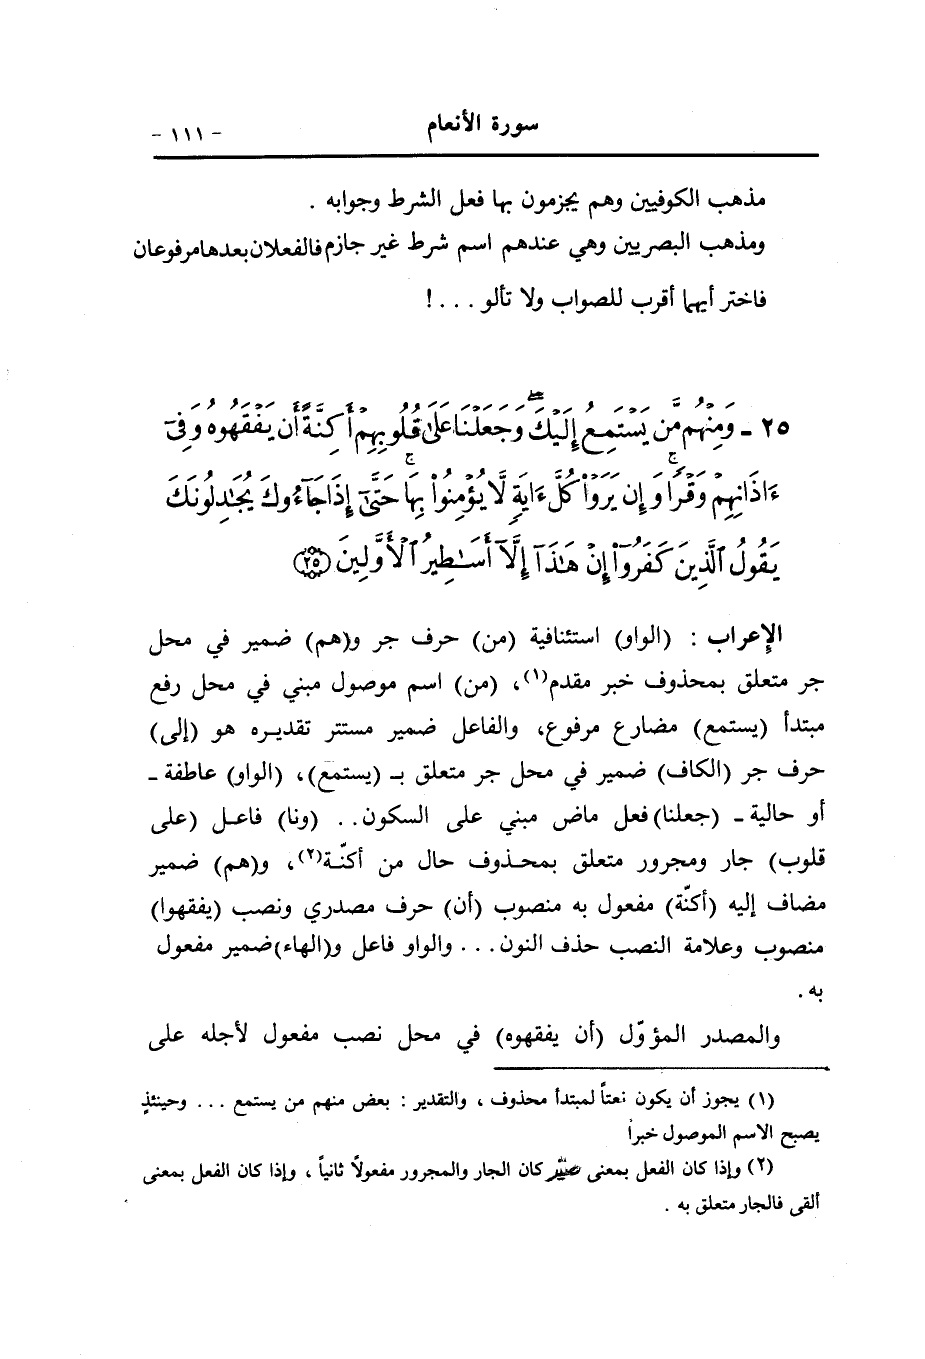 سورة الأنعام
- ١١١ -
مذهب الكوفيين وهم يجزمون بها فعل الشرط وجوابه .
ومذهب البصريين وهي عندهم اسم شرط غير جازم فالفعلان بعدها مرفوعان
فاختر أيهما أقرب للصواب ولا تألو . . . !
٢٥ - وَمِنْهُم مَّن يَسْتَمِعُ إِلَيْكَ ۖ وَجَعَلْنَا عَلَىٰ قُلُوبِهِمْ أَكِنَّةً أَن يَفْقَهُوهُ وَفِىٓ
ءَاذَانِهِمْ وَقْرًا ۚ وَإِن يَرَوْا۟ كُلَّ ءَايَةٍ لَّا يُؤْمِنُوا۟ بِهَا ۚ حَتَّىٰٓ إِذَا جَآءُوكَ يُجَـٰدِلُونَكَ
يَقُولُ ٱلَّذِينَ كَفَرُوٓا۟ إِنْ هَـٰذَآ إِلَّآ أَسَـٰطِيرُ ٱلْأَوَّلِينَ ﴿٢٥﴾
الإعراب : (الواو) استئنافية (من) حرف جر و(هم) ضمير في محل
جر متعلق بمحذوف خبر مقدم(١)، (من) اسم موصول مبني في محل رفع
مبتدأ (يستمع) مضارع مرفوع، والفاعل ضمير مستتر تقديره هو (إلى)
حرف جر (الكاف) ضمير في محل جر متعلق بـ (يستمع)، (الواو) عاطفة -
أو حالية - (جعلنا) فعل ماض مبني على السكون.. (ونا) فاعل (على
قلوب) جار ومجرور متعلق بمحذوف حال من أكنّة(٢)، و(هم) ضمير
مضاف إليه (أكنّة) مفعول به منصوب (أن) حرف مصدري ونصب (يفقهوا)
منصوب وعلامة النصب حذف النون... والواو فاعل و(الهاء)ضمير مفعول
به .
والمصدر المؤوّل (أن يفقهوه) في محل نصب مفعول لأجله على
(١) يجوز أن يكون نعتاً لمبتدأ محذوف ، والتقدير : بعض منهم من يستمع ... وحينئذٍ
يصبح الاسم الموصول خبراً
(٢) وإذا كان الفعل بمعنى صيّر كان الجار والمجرور مفعولاً ثانياً ، وإذا كان الفعل بمعنى
ألقى فالجار متعلق به .